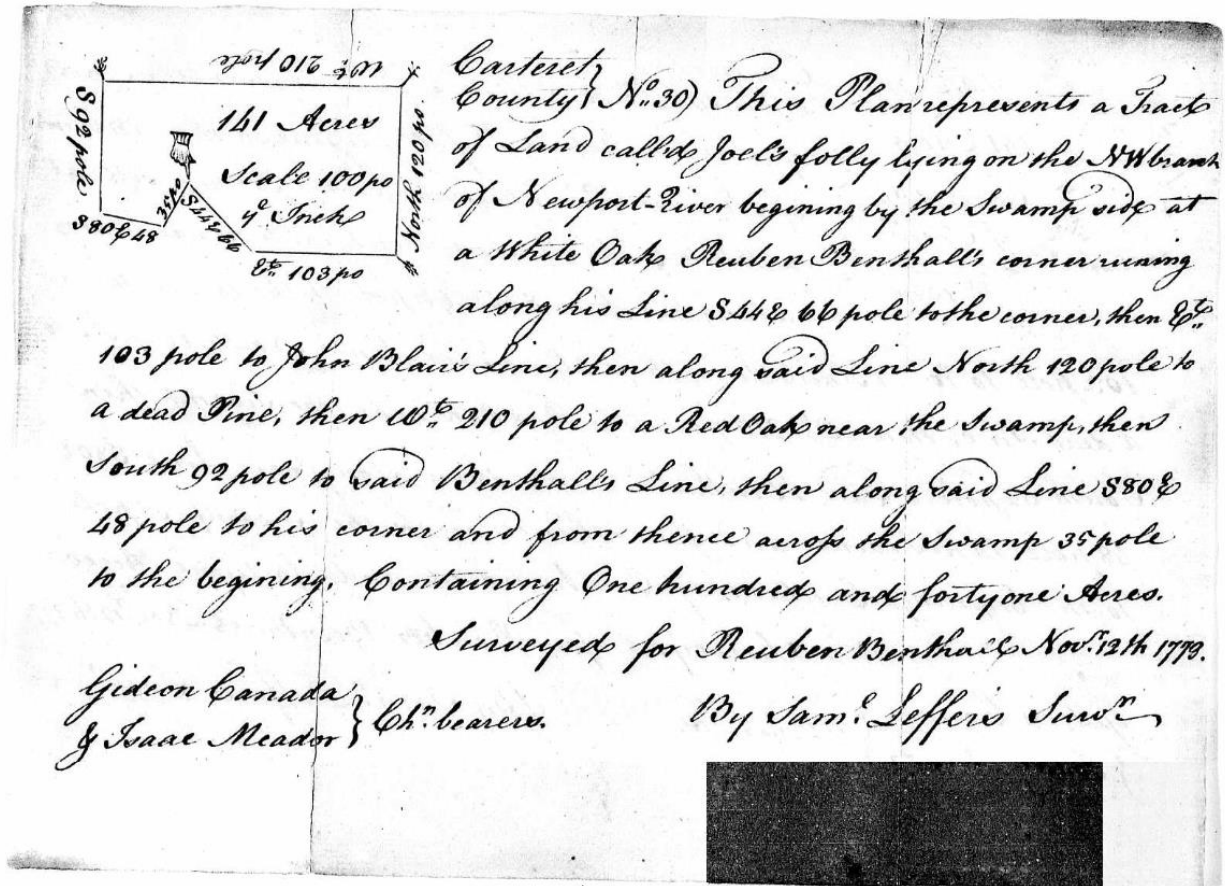 Wt. 210 pole
S 92 pole
141 Acres
Scale 100 po
ye. Inch
North 120 po.
35 po
S44E 66
S80E 48
Et. 103 po
Carteret
County } No. 30) This Plan represents a Tract
of Land call'd Joel's folly lying on the NW branch
of Newport-River begining by the Swamp side at
a White Oak Reuben Benthall's corner runing
along his Line S44E 66 pole to the corner, then Et.
103 pole to John Blair's Line, then along said Line North 120 pole to
a dead Pine, then Wt. 210 pole to a Red Oak near the Swamp, then
South 92 pole to said Benthall's Line, then along said Line S80E
48 pole to his corner and from thence across the Swamp 35 pole
to the begining. Containing One hundred and forty one Acres.
Surveyed for Reuben Benthall Novr. 12th 1779.
Gideon Canada
& Isaac Meador } Chn. bearers.
By Saml. Leffers Survr.